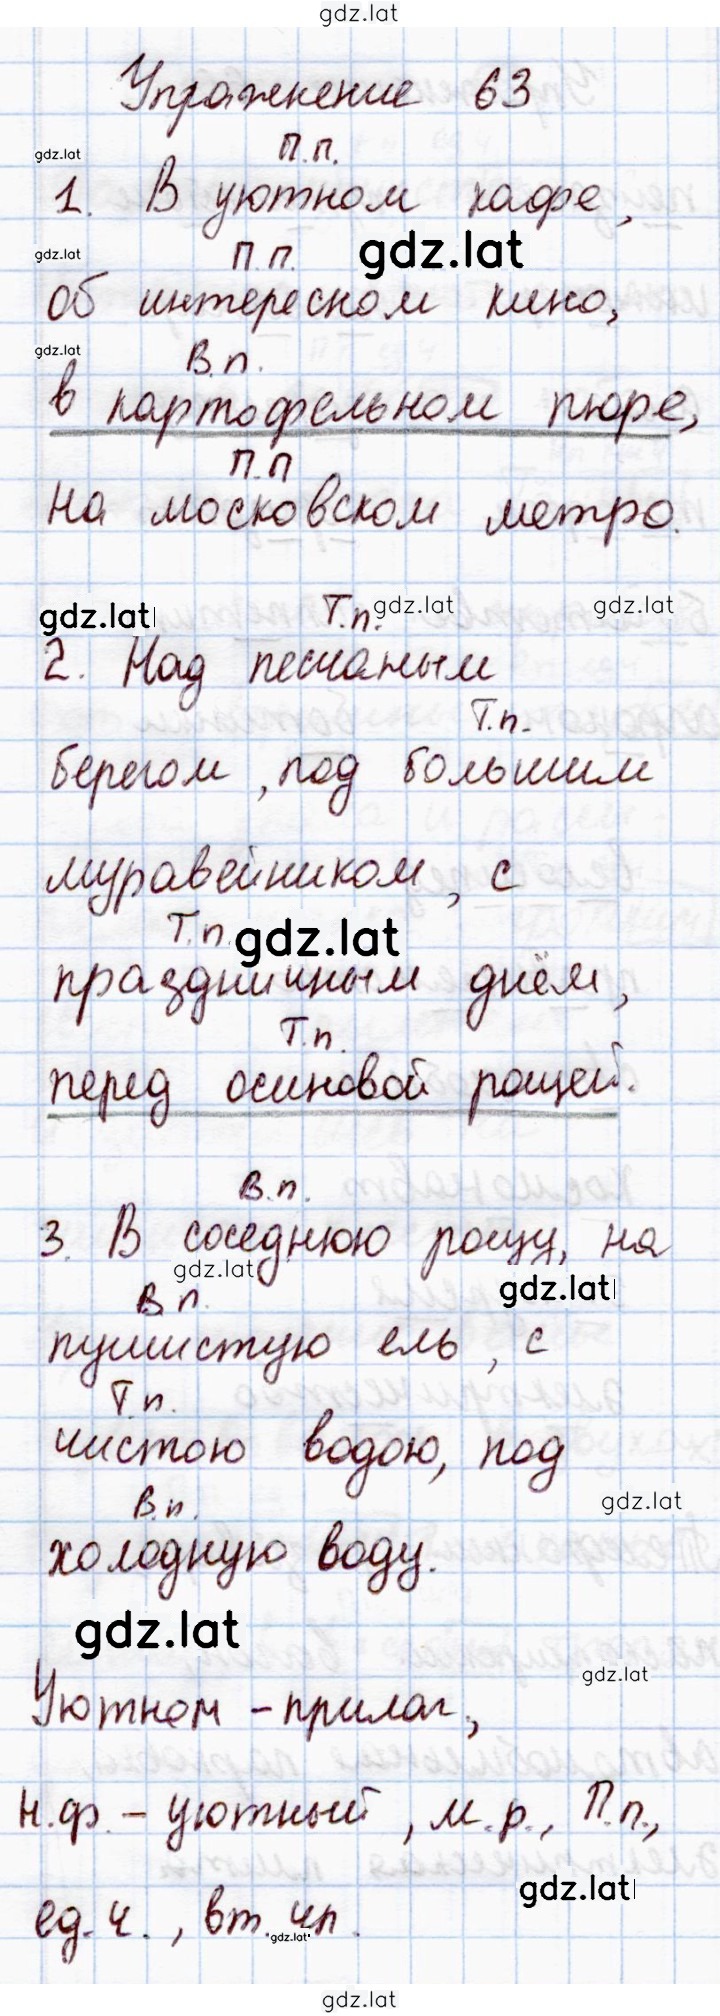 gdz.lat
Упражнение 63
П.п.
gdz.lat
1. В уютном кафе,
gdz.lat П.п. gdz.lat
об интересном кино,
gdz.lat В.п.
в картофельном пюре,
П.п
на московском метро.
gdz.lat Т.п. gdz.lat gdz.lat
2. Над песчаным
Т.п.
берегом, под большим
муравейником, с
Т.п. gdz.lat
праздничным днём,
Т.п.
перед осиновой рощей.
В.п.
3. В соседнюю рощу, на
gdz.lat gdz.lat
В.п.
пушистую ель, с
Т.п.
чистою водою, под
В.п. gdz.lat
холодную воду.
gdz.lat
gdz.lat
Уютном - прилаг.,
н.ф. - уютный, м.р., П.п.,
gdz.lat
ед.ч., вт.
gdz.lat
gdz.lat